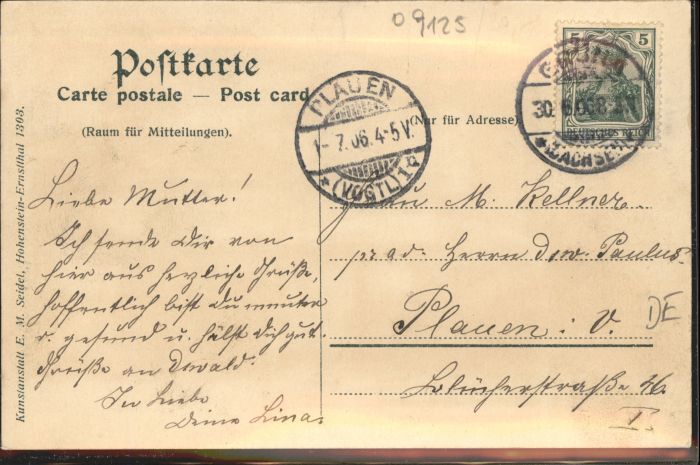 09125
Postkarte
Carte postale — Post card
(Raum für Mitteilungen).
(Nur für Adresse)
PLAUEN
1-7.06.4-5V.
*(VOGTL)1*
5 5
30.6.06.8-9V.
*(SACHSEN)
DEUTSCHES REICH
Kunstanstalt E. M. Seidel, Hohenstein-Ernstthal 1303.
Liebe Mutter!
Ich sende Dir von
hier aus herzliche Grüße,
hoffentlich bist du munter
u. gesund u. hälst dich gut.
Grüße an Oswald.
In Liebe
Deine Lina.
Frau M. Kellner.
pr. ad. Herrn Osw. Paulus.
Plauen i. V.
Blücherstraße 26.
I.
DE